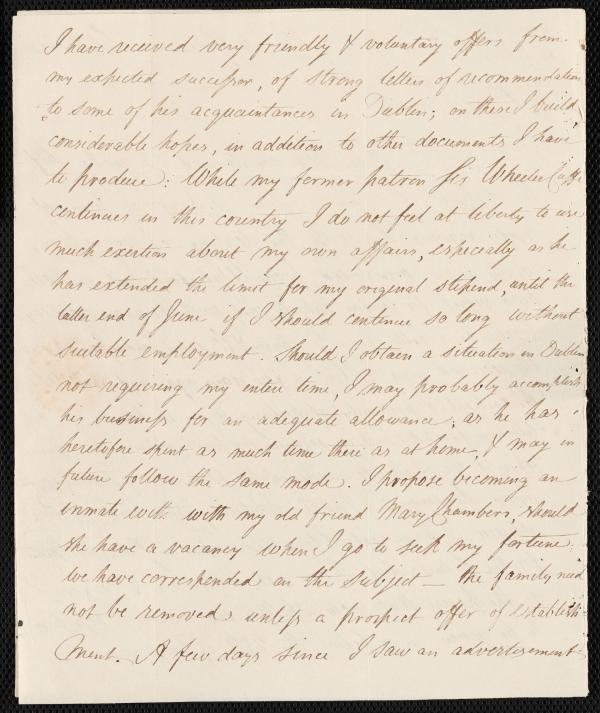 I have received very friendly & voluntary offers from
my expected successor, of strong letters of recommendation
to some of his acquaintances in Dublin; on these I build
considerable hopes, in addition to other documents I have
to produce: While my former patron Sir Wheeler Cuffe
continues in this country I do not feel at liberty to use
much exertion about my own affairs, especially as he
has extended the limit for my original stipend, until the
latter end of June if I should continue so long without
suitable employment. Should I obtain a situation in Dublin
not requiring my entire time, I may probably accomplish
his business for an adequate allowance, as he has
heretofore spent as much time there as at home, & may in
future follow the same mode. I propose becoming an
inmate with with my old friend Mary Chambers, should
she have a vacancy when I go to seek my fortune;
we have corresponded on the subject — the family need
not be removed unless a prospect offer of establish-
ment. A few days since I saw an advertisement